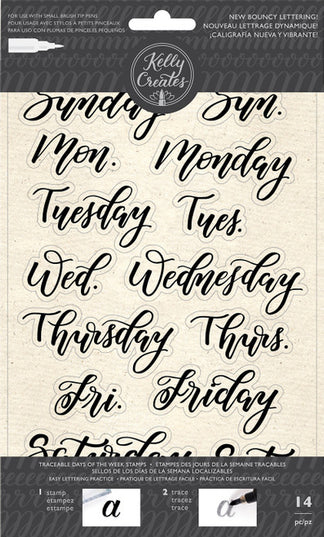 FOR USE WITH SMALL BRUSH TIP PENS
POUR USAGE AVEC STYLOS À PETITS PINCEAUX
PARA USO CON PLUMAS DE PINCELES PEQUEÑOS
Kelly
Creates
NEW BOUNCY LETTERING!
NOUVEAU LETTRAGE DYNAMIQUE!
¡CALIGRAFÍA NUEVA Y VIBRANTE!
Sunday Sun.
Mon. Monday
Tuesday Tues.
Wed. Wednesday
Thursday Thurs.
Fri. Friday
Saturday Sat.
TRACEABLE DAYS OF THE WEEK STAMPS • ÉTAMPES DES JOURS DE LA SEMAINE TRAÇABLES
SELLOS DE LOS DÍAS DE LA SEMANA LOCALIZABLES
EASY LETTERING PRACTICE • PRATIQUE DE LETTRAGE FACILE • PRÁCTICA DE ESCRITURA FÁCIL
1 stamp
étampez
estampe
a
2 trace
tracez
trace
a
14
pc/pz